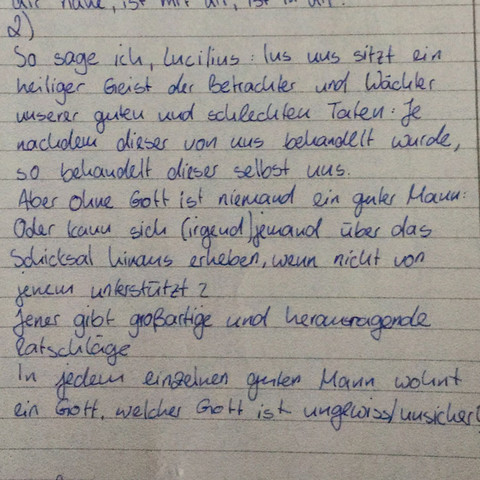 dir nahe, ist mit dir, ist in dir.
2)
So sage ich, Lucilius: Ius uns sitzt ein
heiliger Geist der Betrachter und Wächter
unserer guten und schlechten Taten: Je
nachdem dieser von uns behandelt wurde,
so behandelt dieser selbst uns.
Aber ohne Gott ist niemand ein guter Mann:
Oder kann sich (irgend)jemand über das
Schicksal hinaus erheben, wenn nicht von
jenem unterstützt?
Jener gibt großartige und herausragende
Ratschläge
In jedem einzelnen guten Mann wohnt
ein Gott, welcher Gott ist ungewiss/unsicher!